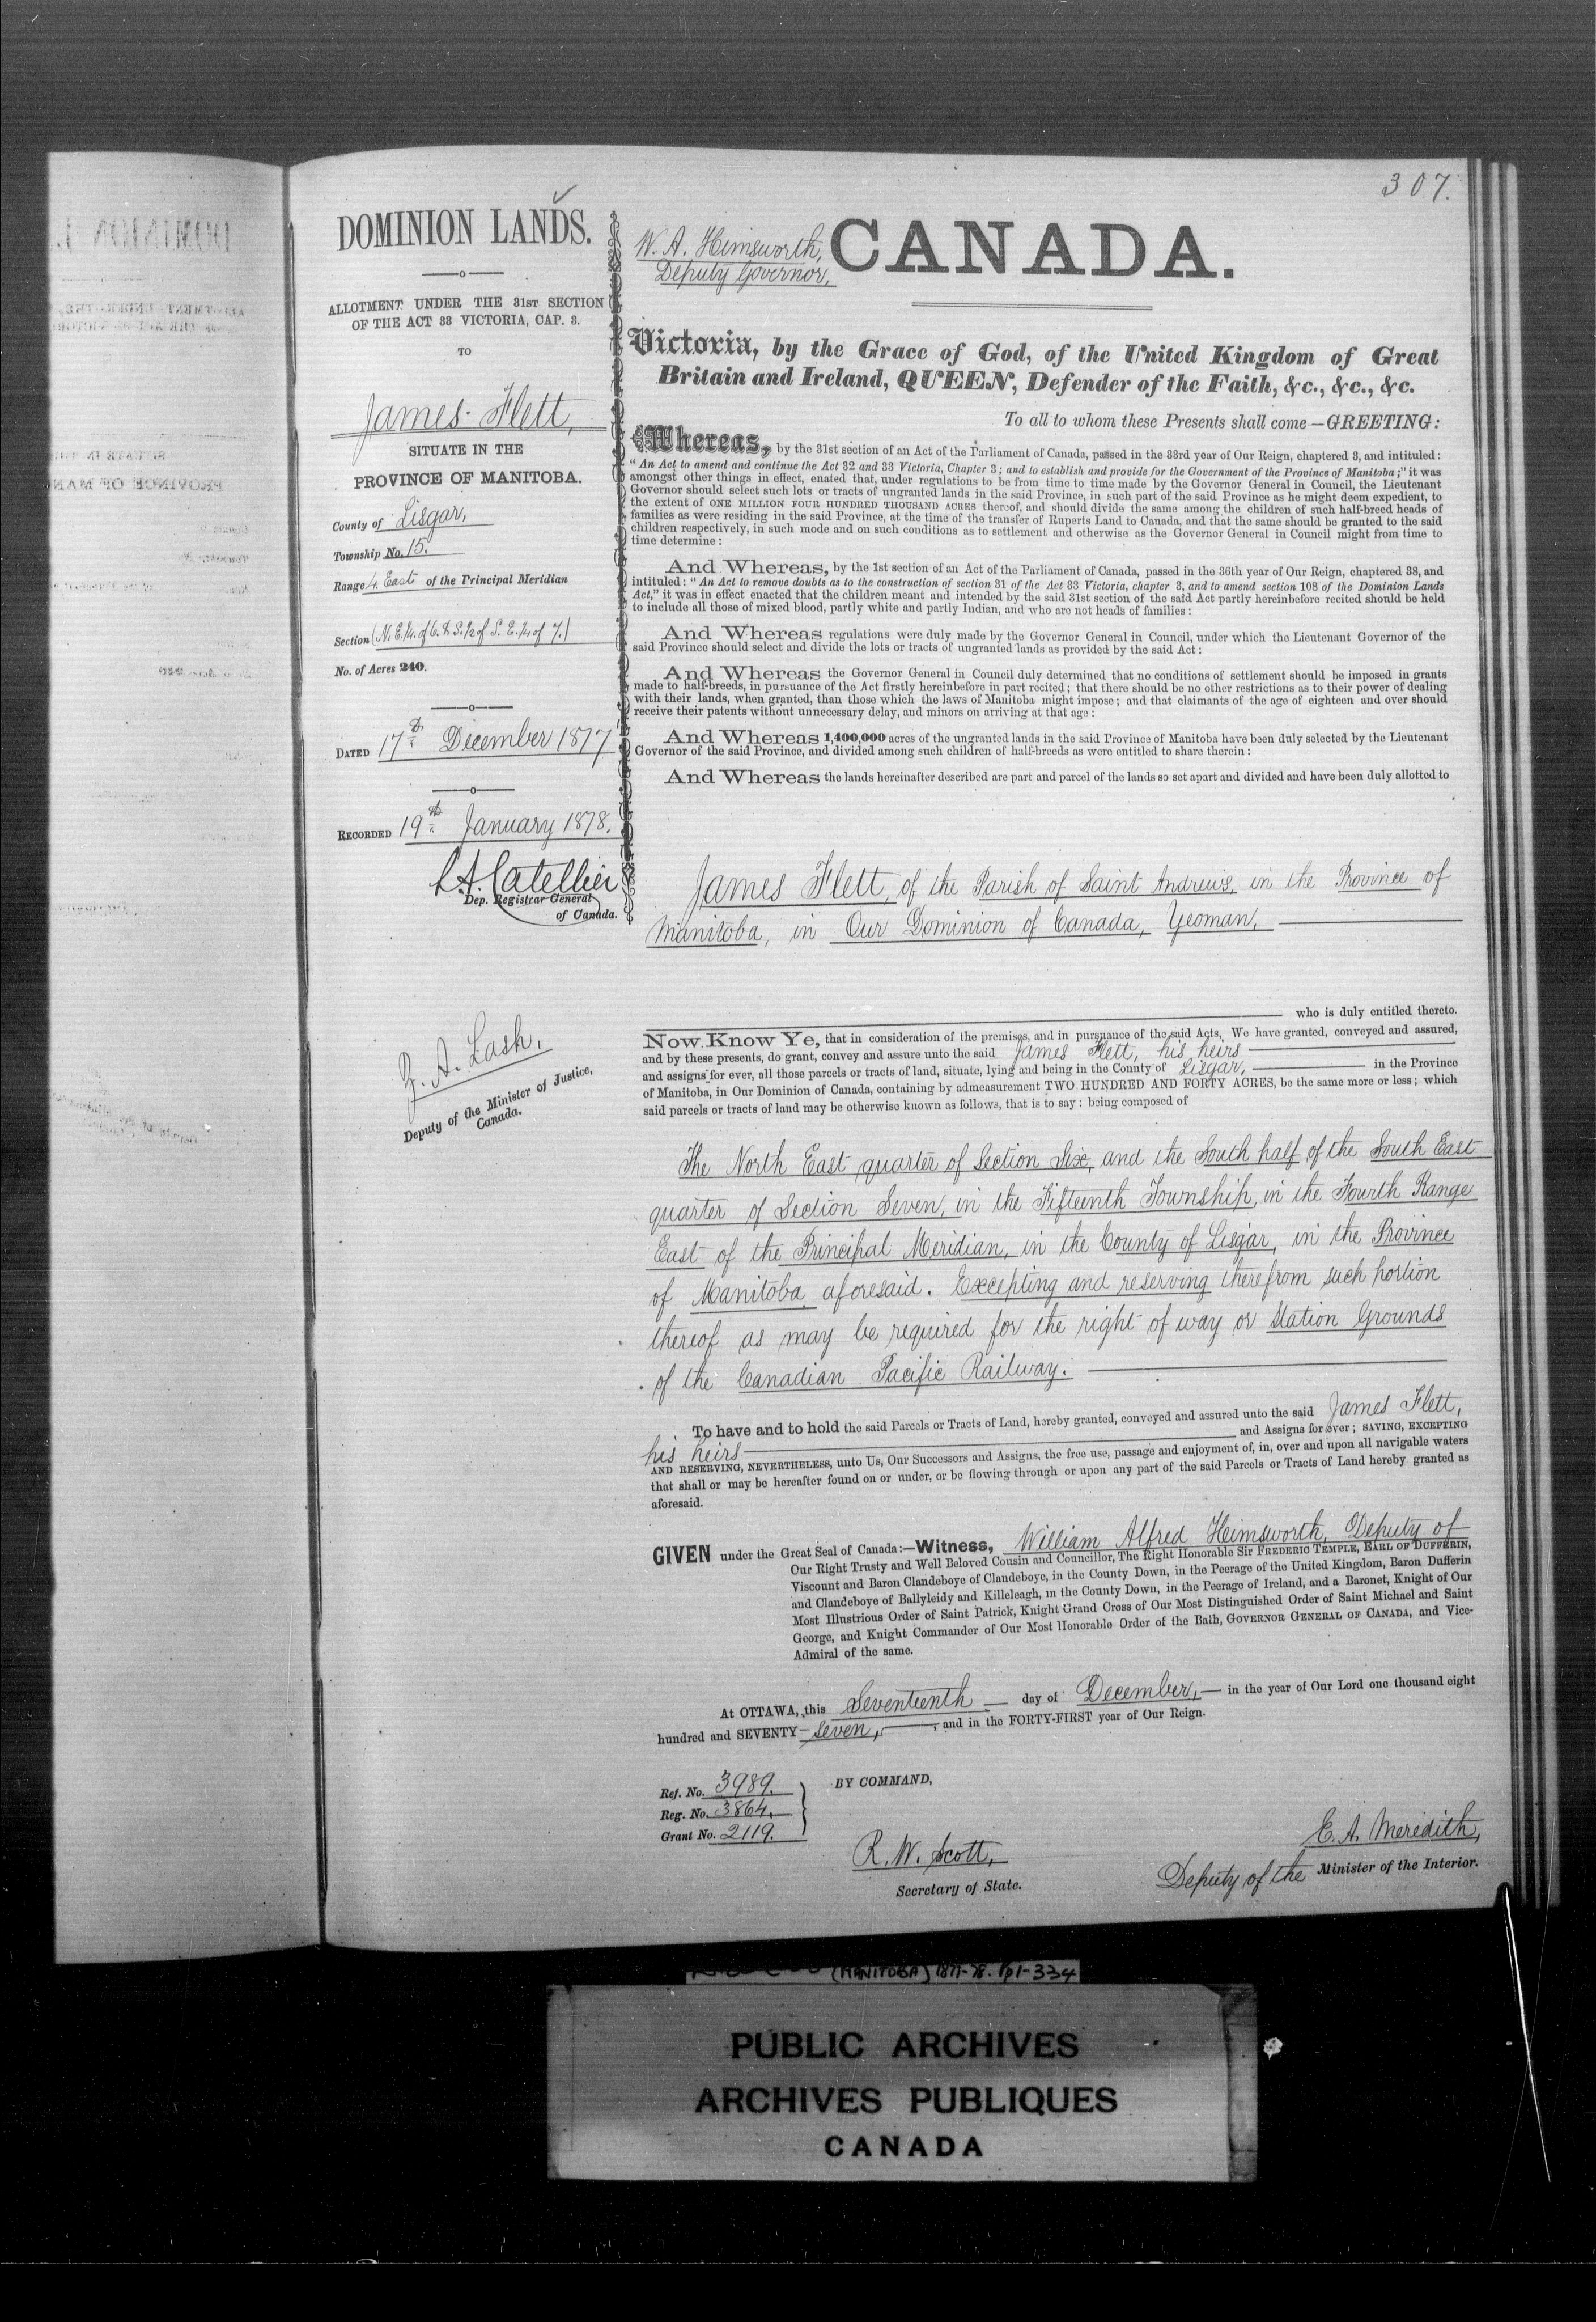 307.
DOMINION LANDS.
ALLOTMENT UNDER THE 31ST SECTION
OF THE ACT 33 VICTORIA, CAP. 3.
TO
James Flett,
SITUATE IN THE
PROVINCE OF MANITOBA.
County of Lisgar,
Township No. 15.
Range 4. East of the Principal Meridian
Section (N. E. 1/4. of 6. & S. 1/2 of S. E. 1/4 of 7.)
No. of Acres 240.
DATED 17th December 1877
RECORDED 19th January 1878.
L. A. Catellier
Dep. Registrar General
of Canada.
Z. A. Lash,
Deputy of the Minister of Justice,
Canada.
W. A. Himsworth,
Deputy Governor,
CANADA.
Victoria, by the Grace of God, of the United Kingdom of Great
Britain and Ireland, QUEEN, Defender of the Faith, &c., &c., &c.
To all to whom these Presents shall come—GREETING:
Whereas, by the 31st section of an Act of the Parliament of Canada, passed in the 33rd year of Our Reign, chaptered 3, and intituled:
"An Act to amend and continue the Act 32 and 33 Victoria, Chapter 3; and to establish and provide for the Government of the Province of Manitoba;" it was
amongst other things in effect, enated that, under regulations to be from time to time made by the Governor General in Council, the Lieutenant
Governor should select such lots or tracts of ungranted lands in the said Province, in such part of the said Province as he might deem expedient, to
the extent of ONE MILLION FOUR HUNDRED THOUSAND ACRES thereof, and should divide the same among the children of such half-breed heads of
families as were residing in the said Province, at the time of the transfer of Ruperts Land to Canada, and that the same should be granted to the said
children respectively, in such mode and on such conditions as to settlement and otherwise as the Governor General in Council might from time to
time determine:
And Whereas, by the 1st section of an Act of the Parliament of Canada, passed in the 36th year of Our Reign, chaptered 38, and
intituled: "An Act to remove doubts as to the construction of section 31 of the Act 33 Victoria, chapter 3, and to amend section 108 of the Dominion Lands
Act," it was in effect enacted that the children meant and intended by the said 31st section of the said Act partly hereinbefore recited should be held
to include all those of mixed blood, partly white and partly Indian, and who are not heads of families:
And Whereas regulations were duly made by the Governor General in Council, under which the Lieutenant Governor of the
said Province should select and divide the lots or tracts of ungranted lands as provided by the said Act:
And Whereas the Governor General in Council duly determined that no conditions of settlement should be imposed in grants
made to half-breeds, in pursuance of the Act firstly hereinbefore in part recited; that there should be no other restrictions as to their power of dealing
with their lands, when granted, than those which the laws of Manitoba might impose; and that claimants of the age of eighteen and over should
receive their patents without unnecessary delay, and minors on arriving at that age:
And Whereas 1,400,000 acres of the ungranted lands in the said Province of Manitoba have been duly selected by the Lieutenant
Governor of the said Province, and divided among such children of half-breeds as were entitled to share therein:
And Whereas the lands hereinafter described are part and parcel of the lands so set apart and divided and have been duly allotted to
James Flett, of the Parish of Saint Andrews, in the Province of
Manitoba, in Our Dominion of Canada, Yeoman,
who is duly entitled thereto.
Now Know Ye, that in consideration of the premises, and in pursuance of the said Acts, We have granted, conveyed and assured,
and by these presents, do grant, convey and assure unto the said James Flett, his heirs
and assigns for ever, all those parcels or tracts of land, situate, lying and being in the County of Lisgar, in the Province
of Manitoba, in Our Dominion of Canada, containing by admeasurement TWO HUNDRED AND FORTY ACRES, be the same more or less; which
said parcels or tracts of land may be otherwise known as follows, that is to say: being composed of
The North East quarter of Section Six, and the South half of the South East
quarter of Section Seven, in the Fifteenth Township, in the Fourth Range
East of the Principal Meridian, in the County of Lisgar, in the Province
of Manitoba aforesaid. Excepting and reserving therefrom such portion
thereof as may be required for the right of way or Station Grounds
of the Canadian Pacific Railway.
To have and to hold the said Parcels or Tracts of Land, hereby granted, conveyed and assured unto the said James Flett,
his heirs and Assigns for ever; SAVING, EXCEPTING
AND RESERVING, NEVERTHELESS, unto Us, Our Successors and Assigns, the free use, passage and enjoyment of, in, over and upon all navigable waters
that shall or may be hereafter found on or under, or be flowing through or upon any part of the said Parcels or Tracts of Land hereby granted as
aforesaid.
GIVEN under the Great Seal of Canada:—Witness, William Alfred Himsworth, Deputy of
Our Right Trusty and Well Beloved Cousin and Councillor, The Right Honorable Sir FREDERIC TEMPLE, EARL OF DUFFERIN,
Viscount and Baron Clandeboye of Clandeboye, in the County Down, in the Peerage of the United Kingdom, Baron Dufferin
and Clandeboye of Ballyleidy and Killeleagh, in the County Down, in the Peerage of Ireland, and a Baronet, Knight of Our
Most Illustrious Order of Saint Patrick, Knight Grand Cross of Our Most Distinguished Order of Saint Michael and Saint
George, and Knight Commander of Our Most Honorable Order of the Bath, GOVERNOR GENERAL OF CANADA, and Vice-
Admiral of the same.
At OTTAWA, this Seventeenth day of December, in the year of Our Lord one thousand eight
hundred and SEVENTY-seven, and in the FORTY-FIRST year of Our Reign.
Ref. No. 3989.
Reg. No. 3864.
Grant No. 2119.
BY COMMAND,
R. W. Scott,
Secretary of State.
E. A. Meredith,
Deputy of the Minister of the Interior.
(MANITOBA) 1877-78. pp1-334
PUBLIC ARCHIVES
ARCHIVES PUBLIQUES
CANADA